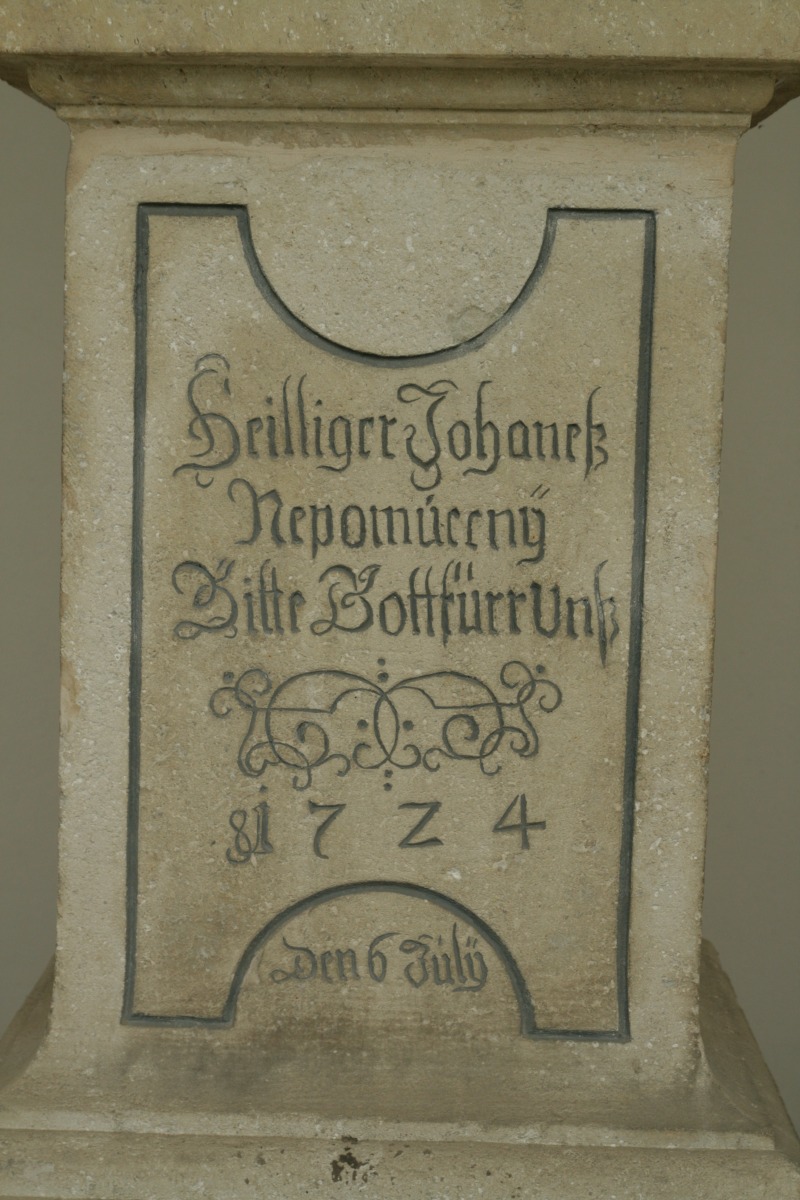 Heilliger Johaneß
Nepomúcenÿ
Bitte Gott fürr Unß
1724
Den 6 Júlÿ